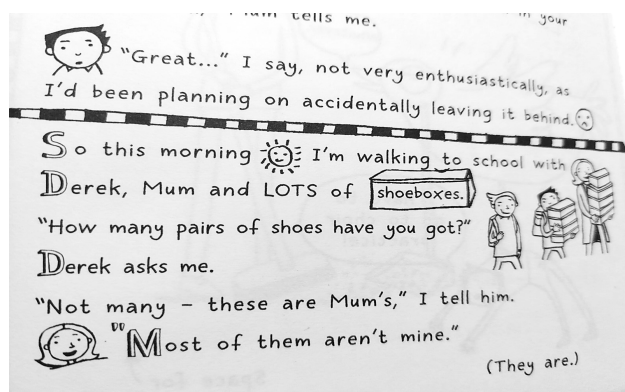 tells me.
in your
"Great..." I say, not very enthusiastically, as
I'd been planning on accidentally leaving it behind.
So this morning I'm walking to school with
Derek, Mum and LOTS of shoeboxes.
"How many pairs of shoes have you got?"
Derek asks me.
"Not many – these are Mum's," I tell him.
"Most of them aren't mine."
(They are.)